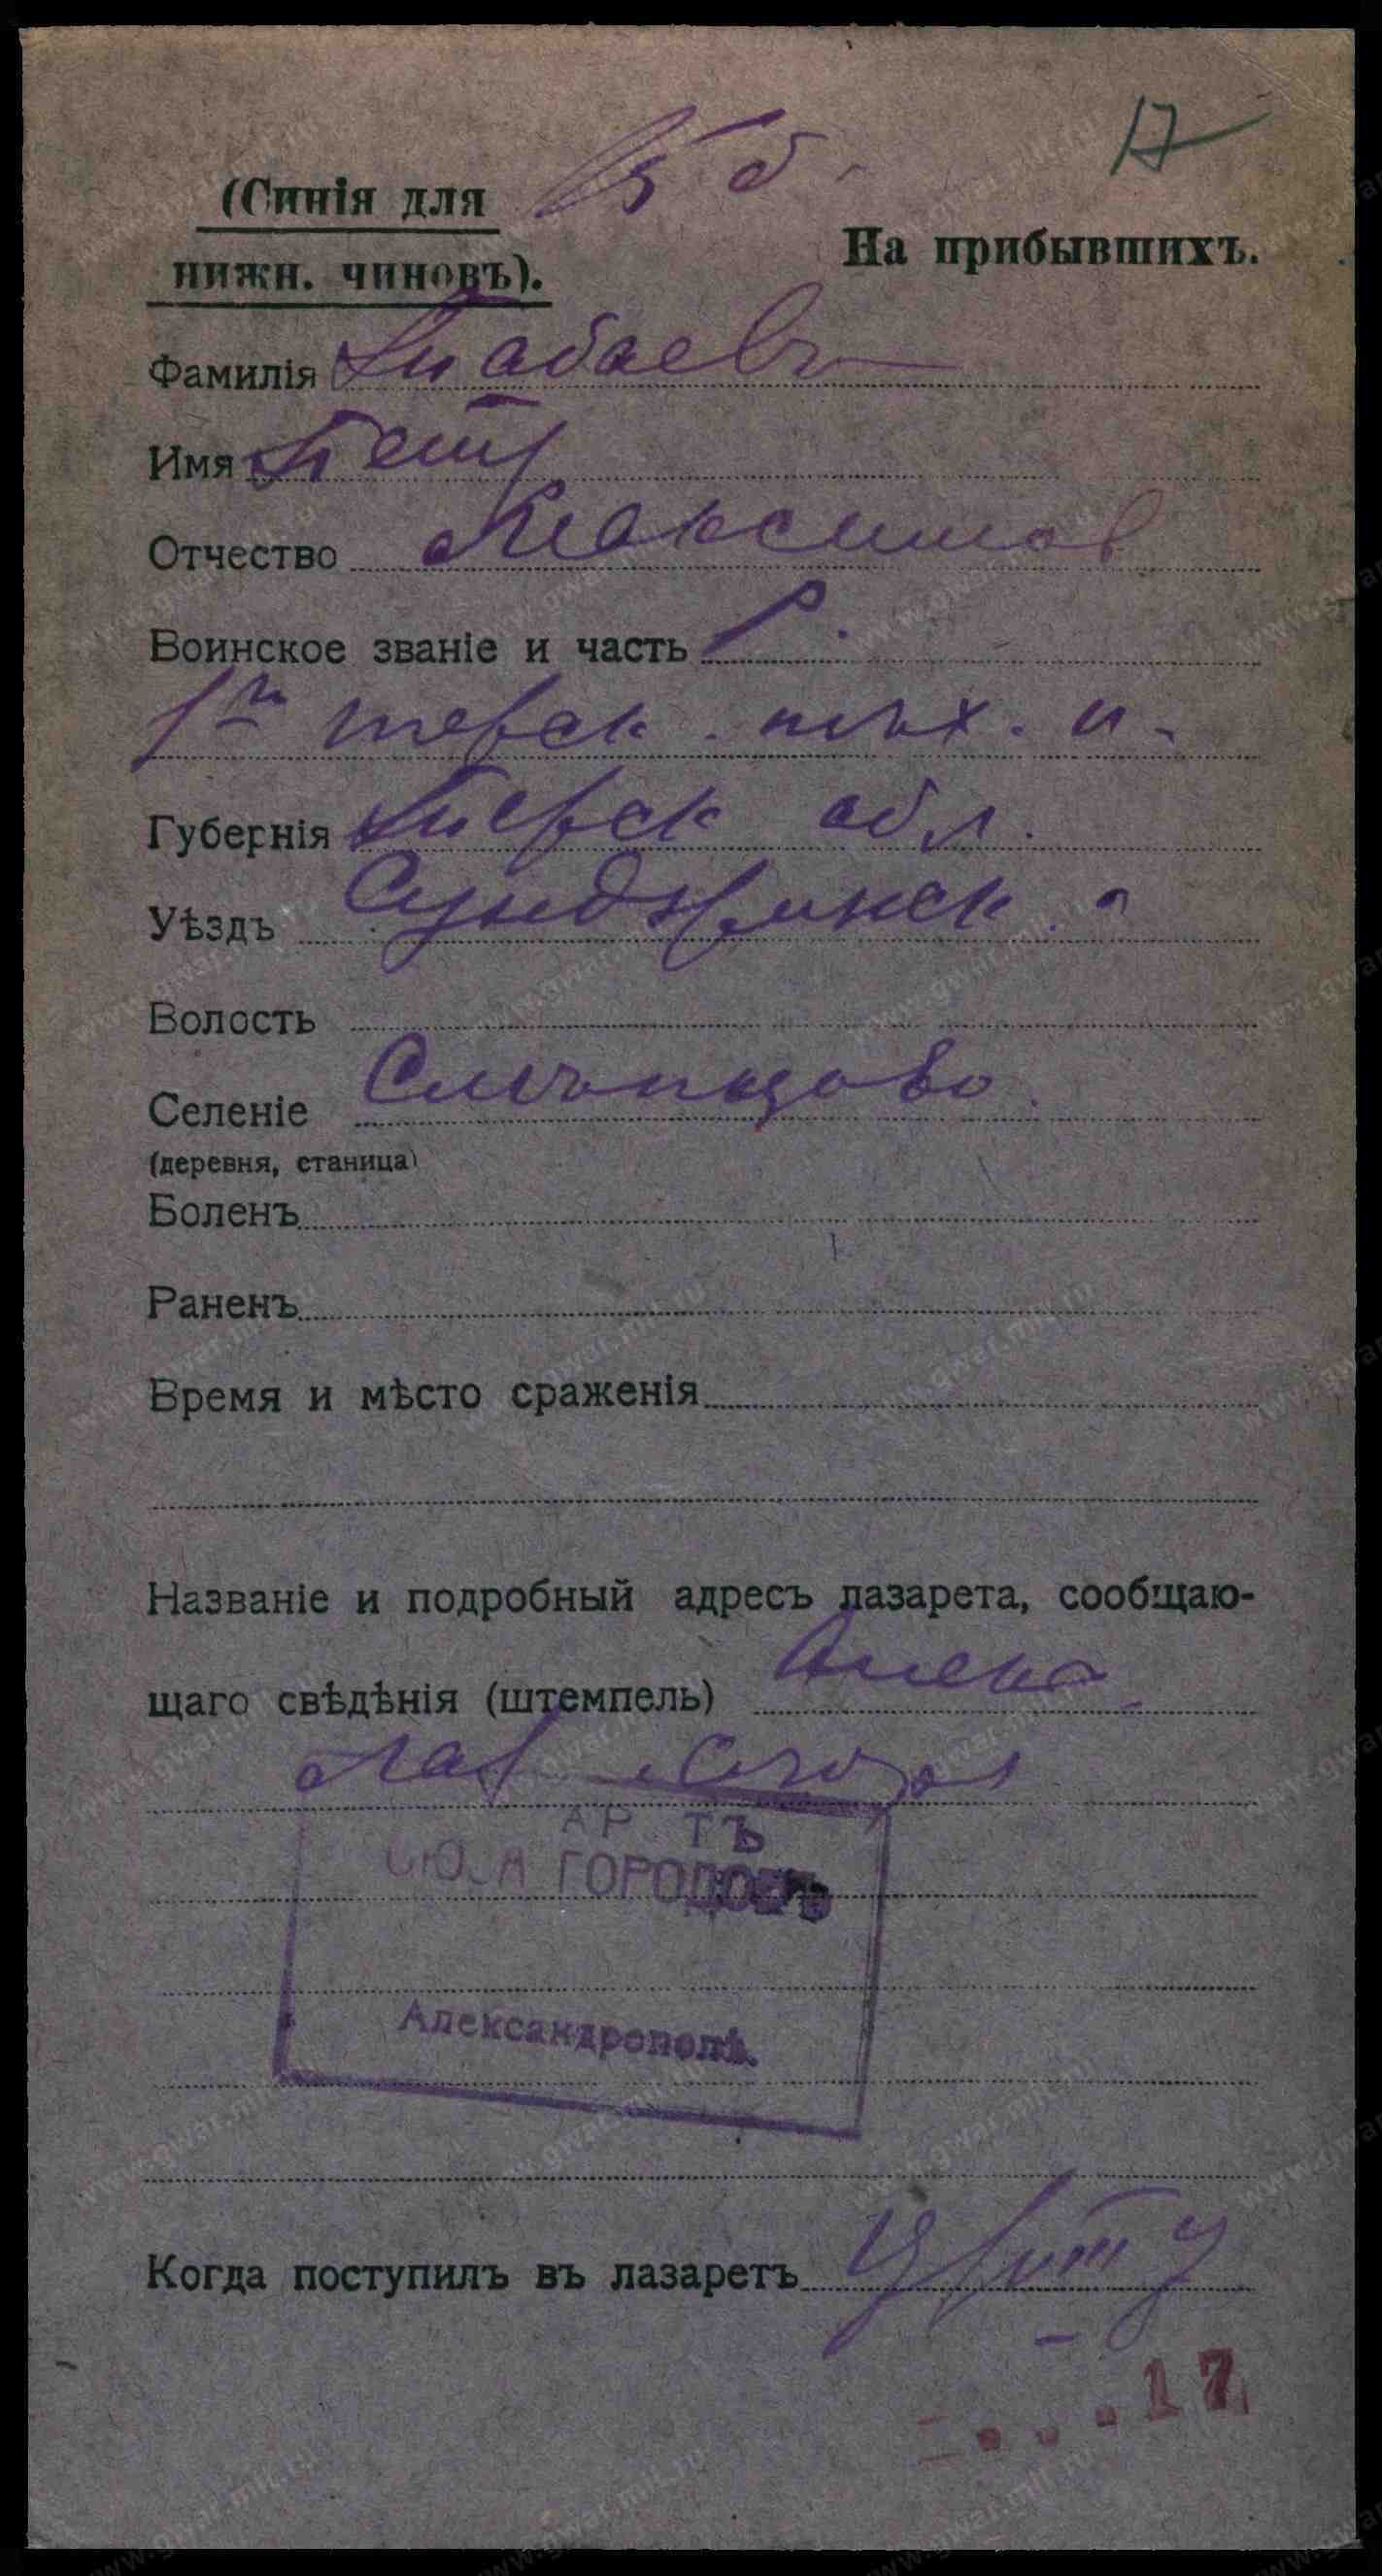 17
(Синія для
нижн. чиновъ).
На прибывшихъ.
Фамилія Табаевъ
Имя Петр
Отчество Максимов
Воинское званіе и часть Р.
1й терск. плх. п.
Губернія Терск обл.
Уѣздъ Сунджинск. о
Волость
Селеніе Слѣпцово
(деревня, станица)
Боленъ
Раненъ
Время и мѣсто сраженія
Названіе и подробный адресъ лазарета, сообщаю-
щаго свѣдѣнія (штемпель) Алекс
лаз
ГОРОДОВЪ
Александрополѣ.
Когда поступилъ въ лазаретъ
17